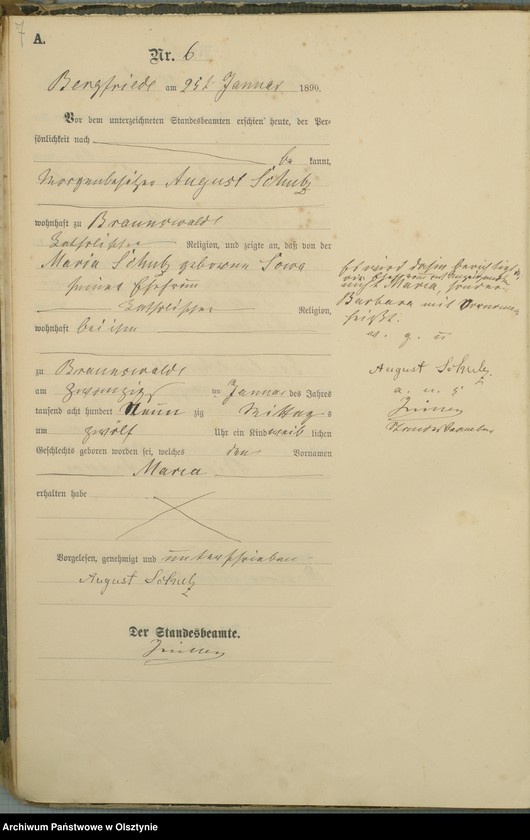 7
A.
Nr. 6
Bergfriede am 25t Januar 1890.
Vor dem unterzeichneten Standesbeamten erschien heute, der Per-
sönlichkeit nach
be kannt,
August Schulz
wohnhaft zu Braunswalde
katholischer Religion, und zeigte an, daß von der
Maria Schulz geborene Sowa
seiner Ehefrau
katholischer Religion,
wohnhaft bei ihm
zu Braunswalde
am zwanzigs Januar des Jahres
tausend acht hundert Neun zig Mittag s
um zwölf Uhr ein Kind weib lichen
Geschlechts geboren worden sei, welches den Vornamen
Maria
erhalten habe
Vorgelesen, genehmigt und unterschrieben
August Schulz
Der Standesbeamte.
Es wird dahin berichtigt
nicht Maria, sondern
Barbara mit Vornamen
heißt.
v. g. u
August Schulz
a. u. s
Standesbeamter
Archiwum Państwowe w Olsztynie